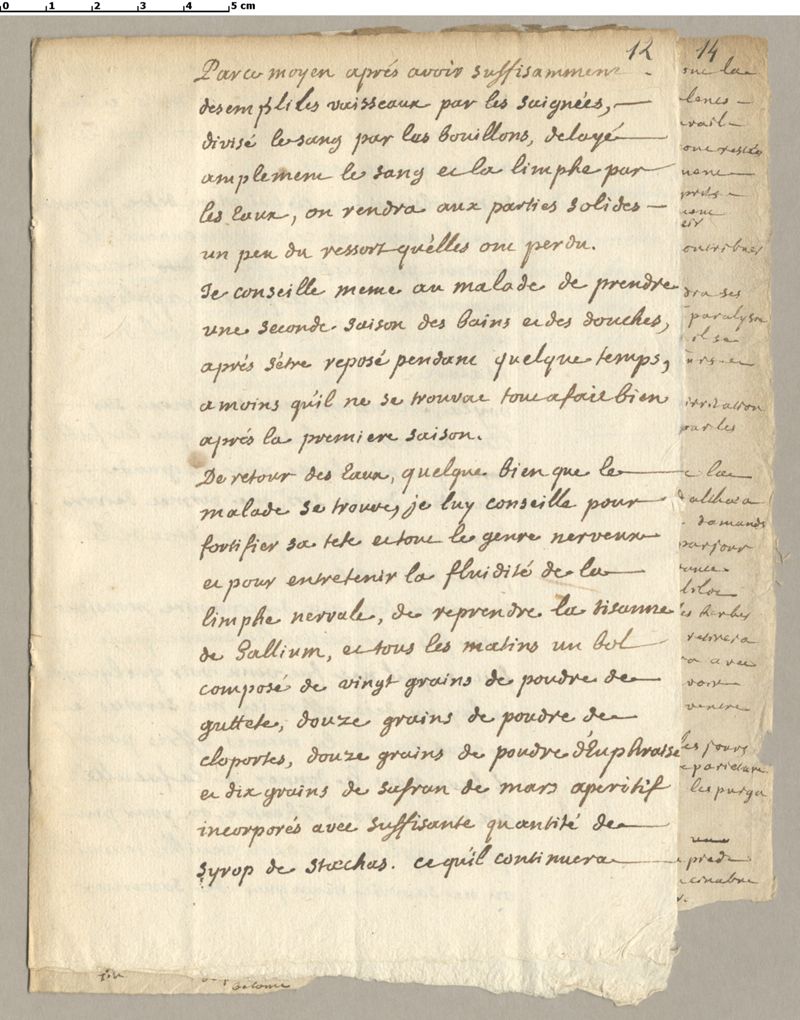 0 1 2 3 4 5 cm
12
Par ce moyen aprés avoir suffisamment
desempli les vaisseaux par les saignées,
divisé le sang par les bouillons, delayé
amplement le sang et la limphe par
les Eaux, on rendra aux parties solides
un peu du ressort qu'elles ont perdu.
Je conseille meme au malade de prendre
une seconde saison des bains et des douches,
aprés s'étre reposé pendant quelque temps,
a moins qu'il ne se trouvat tout a fait bien
aprés la premiere saison.
De retour des Eaux, quelque bien que le
malade se trouve, je luy conseille pour
fortifier sa tete et tout le genre nerveux
et pour entretenir la fluidité de la
limphe nervale, de reprendre la tisanne
de Gallium, et tous les matins un bol
composé de vingt grains de poudre de
guttete, douze grains de poudre de
cloportes, douze grains de poudre d'Euphraise
et dix grains de safran de mars aperitif
incorporés avec suffisante quantité de
syrop de stœchas. ce qu'il continuera
14
la
paralysie
il se
irritation
par les
la
d'althœa
par jour
les herbes
retirera
avec
ventre
les jours